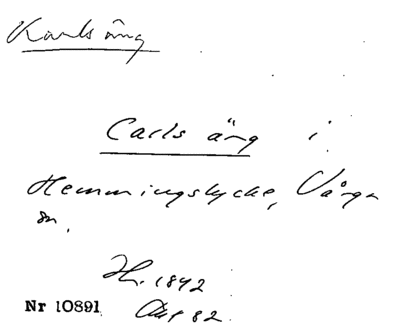 Karls äng
Carls äng i
Hemmingslycke, Vånga
sn.
1842
Nr 10891 82